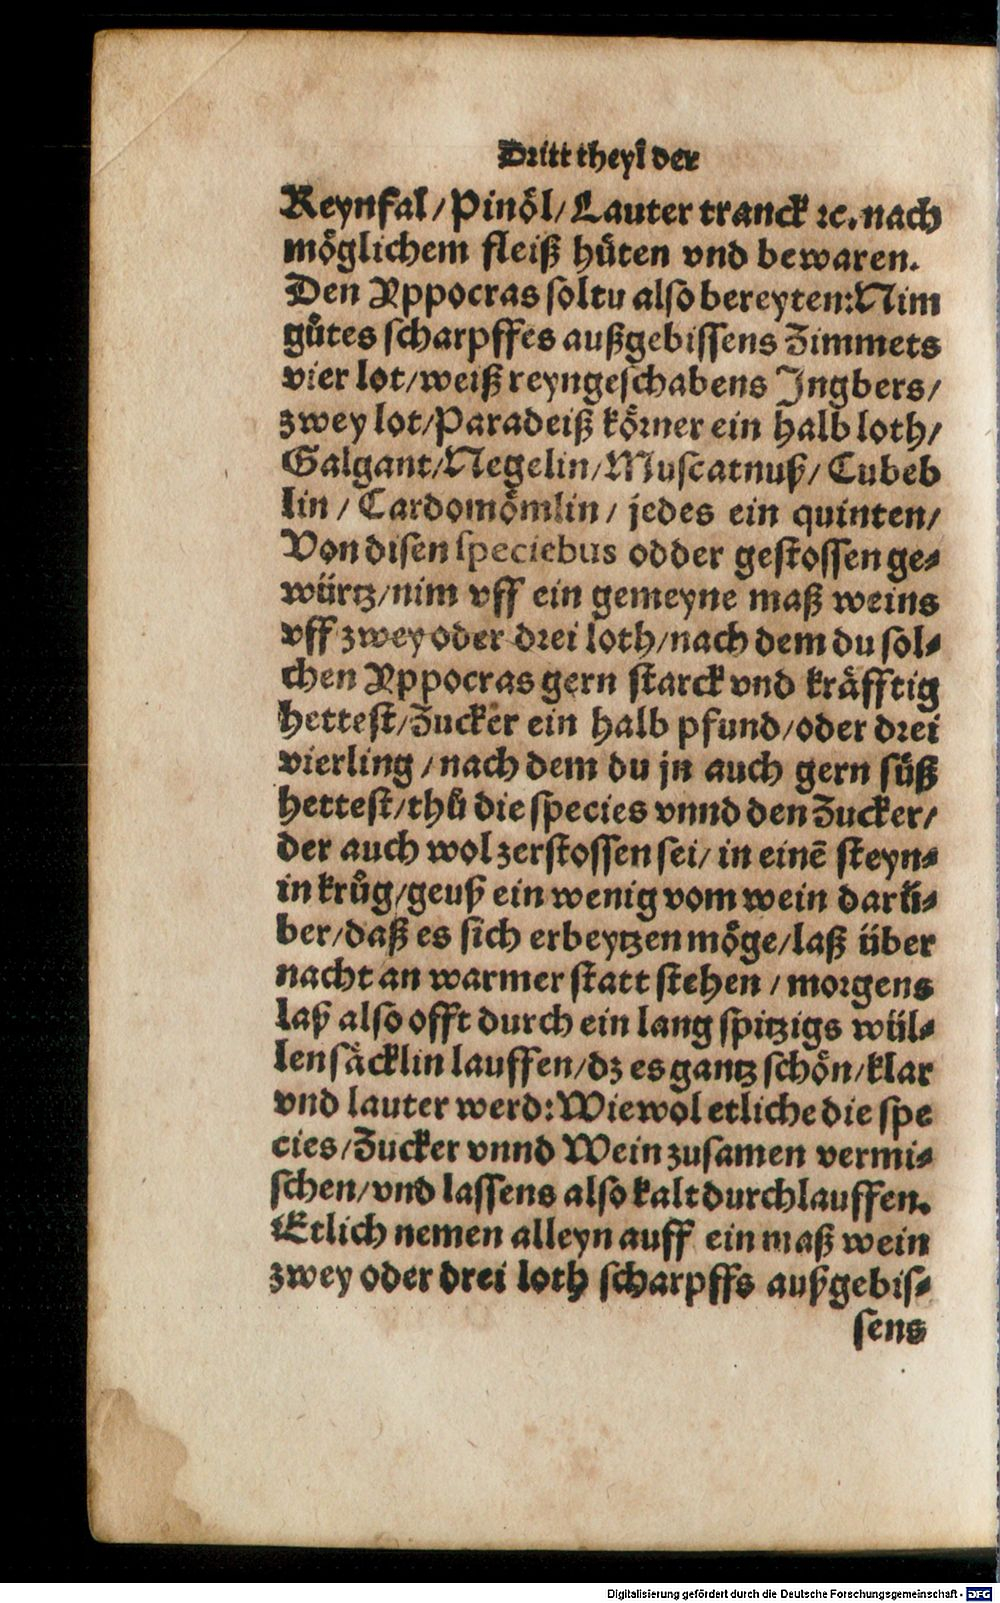 Dritt theyl der
Reynfal/Pinöl/Lauter tranck ꝛc. nach
möglichem fleiß hüten vnd bewaren.
Den Yppocras soltu also bereyten: Nim
gůtes scharpffes außgebissens Zimmets
vier lot/weiß reyngeschabens Ingbers/
zwey lot/Paradeiß körner ein halb loth/
Galgant/Negelin/Muscatnuß/Cubeb
lin/Cardomömlin/jedes ein quinten/
Von disen speciebus odder gestossen ge-
würtz/nim vff ein gemeyne maß weins
vff zwey oder drei loth/nach dem du sol-
chen Yppocras gern starck vnd kräfftig
hettest/Zucker ein halb pfund/oder drei
vierling/nach dem du jn auch gern süß
hettest/thů die species vnnd den Zucker/
der auch wol zerstossen sei/in einē steyn-
in krůg/geuß ein wenig vom wein darü-
ber/daß es sich erbeytzen möge/laß über
nacht an warmer statt stehen/morgens
laß also offt durch ein lang spitzigs wül-
len säcklin lauffen/dz es gantz schön/klar
vnd lauter werd: Wiewol etliche die spe
cies/Zucker vnnd Wein zusamen vermi-
schen/vnd lassens also kalt durchlauffen.
Etlich nemen alleyn auff ein maß wein
zwey oder drei loth scharpffs außgebis-
sens
Digitalisierung gefördert durch die Deutsche Forschungsgemeinschaft - DFG